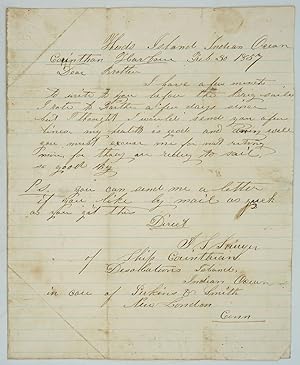 Herds Island Indian Ocean
Corinthian Harbour Feb 30 1857
Dear Brother
I have a few moments
to write to you before the
I rote to Father a few days since
but I thought I would send you a few
lines my health is good and doing well
you must excuse me for not riting
more for they are redey to sail
good by
P.S. you can send me a letter
if you like by mail as quick
as you get this
Direct
of Ship Corinthian
Desolations Island
Indian Ocean
in care of Perkins & Smith
New London
Conn